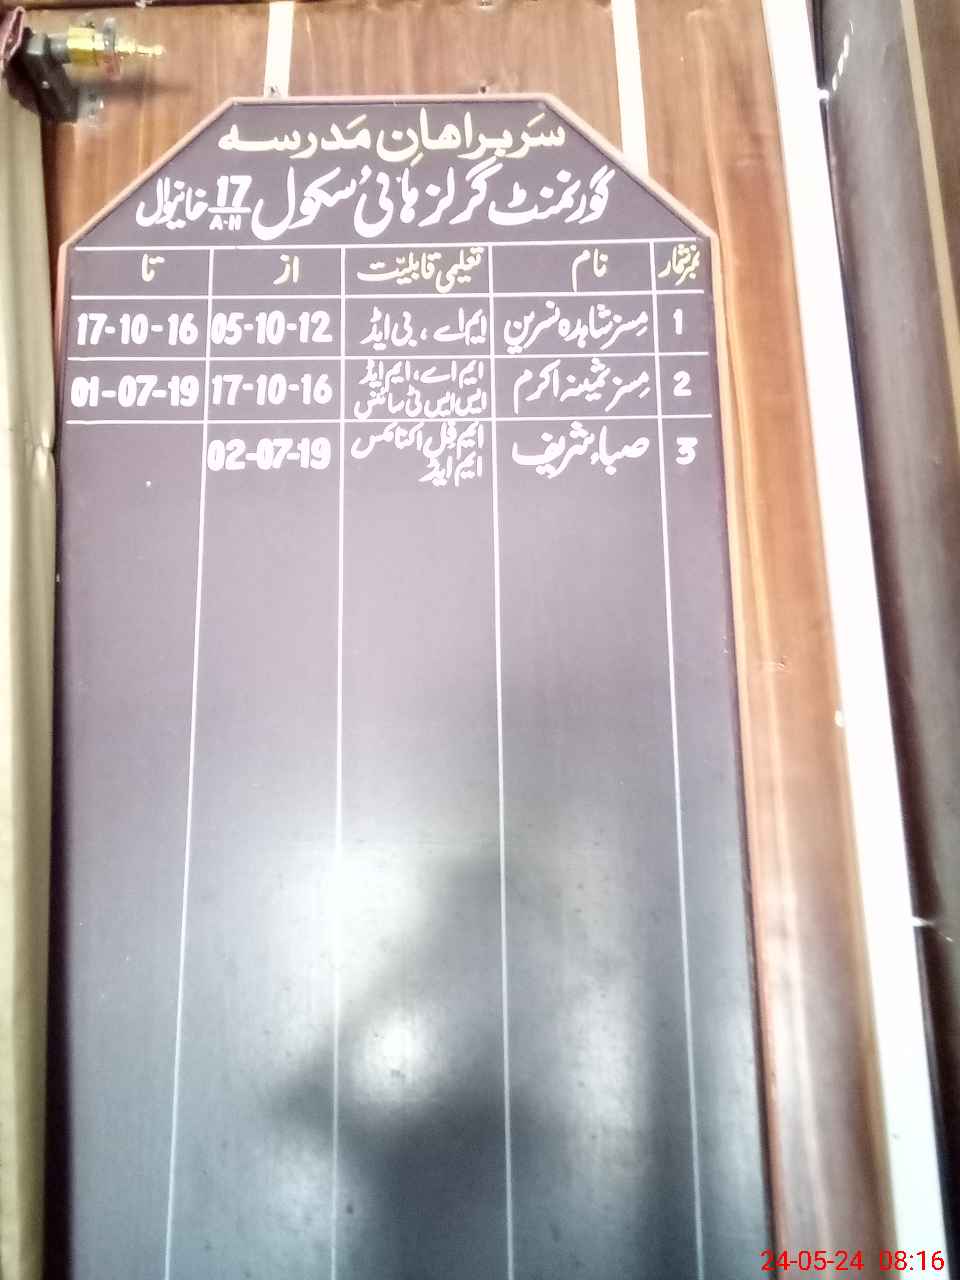 سربراہانِ مَدرسہ
گورنمنٹ گرلز ہائی سکول 17/A-H خانیوال
نمبر شمار نام تعلیمی قابلیّت از تا
1 مسز شاہدہ نسرین ایم اے، بی ایڈ 05-10-12 17-10-16
2 مسز ثمینہ اکرم ایم اے، ایم ایڈ 17-10-16 01-07-19
ایس ایس ٹی سائنس
3 صباء شریف ایم فِل اکنامکس 02-07-19
ایم ایڈ
24-05-24 08:16